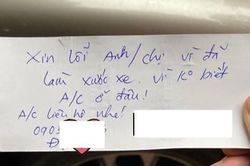 Xin lỗi Anh/chị vì đã
làm xước xe. Vì ko biết
A/C ở đâu!
A/C liên hệ nhé!
090
Đ